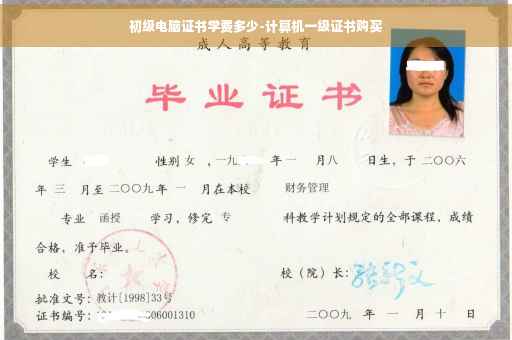 初级电脑证书学费多少-计算机一级证书购买
成人高等教育
毕业证书
学生 性别 女 ，一九 年一 月八 日生，于二〇〇六
年 三 月至二〇〇九年 一 月在本校 财务管理
专业 函授 学习，修完 专 科教学计划规定的全部课程，成绩
合格，准予毕业。
校 名： 校（院）长：
批准文号：教计[1998]33号
证书编号： 06001310 二〇〇九 年 一 月 十 日